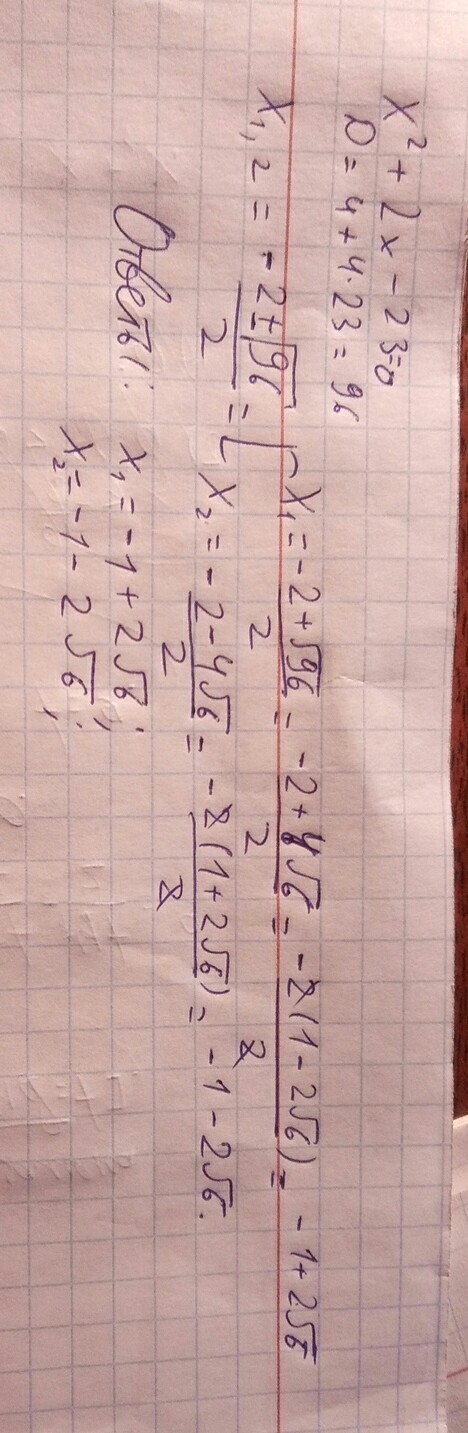 x² + 2x - 23 = 0
D = 4 + 4·23 = 96
x₁,₂ = (-2 ± √96)/2 = [ x₁ = (-2 + √96)/2 = (-2 + 4√6)/2 = (-2(1 - 2√6))/2 = -1 + 2√6
x₂ = (-2 - 4√6)/2 = (-2(1 + 2√6))/2 = -1 - 2√6.
Ответы: x₁ = -1 + 2√6;
x₂ = -1 - 2√6;